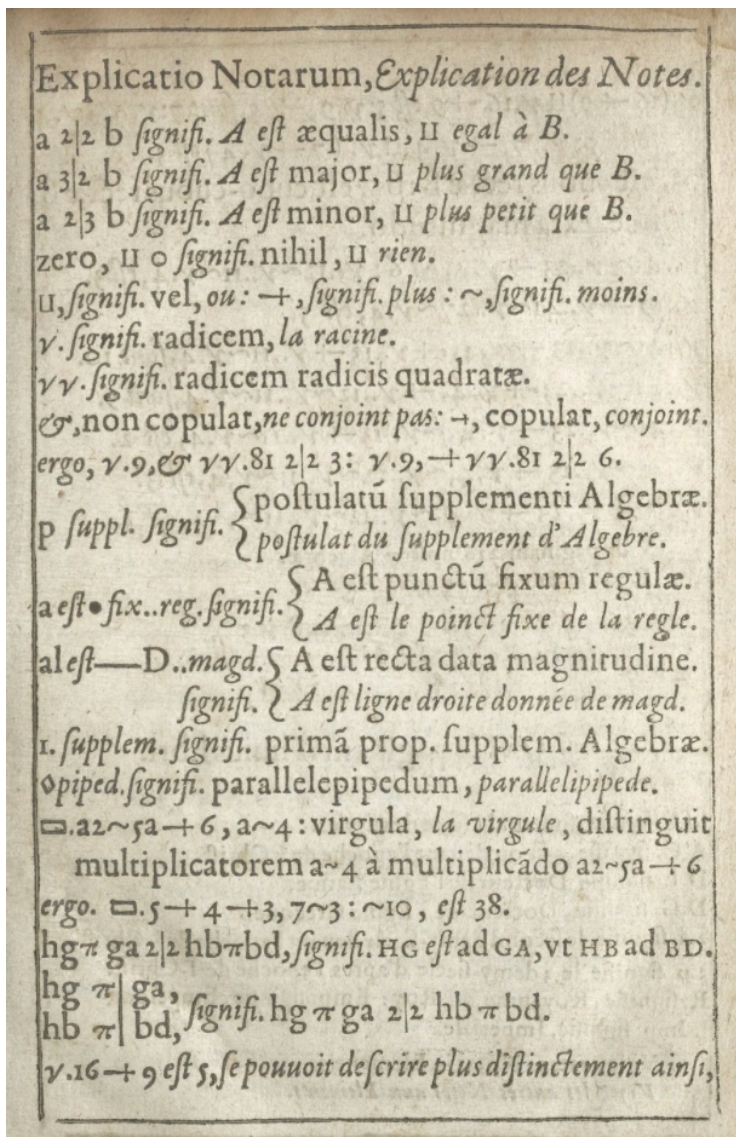 Explicatio Notarum, Explication des Notes.
a 2|2 b ſignifi. A eſt æqualis, ⊔ egal à B.
a 3|2 b ſignifi. A eſt major, ⊔ plus grand que B.
a 2|3 b ſignifi. A eſt minor, ⊔ plus petit que B.
zero, ⊔ 0 ſignifi. nihil, ⊔ rien.
⊔, ſignifi. vel, ou: -+, ſignifi. plus : ~, ſignifi. moins.
√. ſignifi. radicem, la racine.
√√. ſignifi. radicem radicis quadratæ.
&, non copulat, ne conjoint pas: -+, copulat, conjoint.
ergo, √.9, & √√.81 2|2 3: √.9, -+ √√.81 2|2 6.
p ſuppl. ſignifi. { poſtulatũ ſupplementi Algebræ.
poſtulat du ſupplement d'Algebre.
a eſt • fix.. reg. ſignifi. { A eſt punctũ fixum regulæ.
A eſt le poinct fixe de la regle.
al eſt — D.. magd. { A eſt recta data magnitudine.
ſignifi. A eſt ligne droite donnée de magd.
1. ſupplem. ſignifi. primã prop. ſupplem. Algebræ.
◊piped. ſignifi. parallelepipedum, parallelipipede.
▭.a2~5a-+6, a~4: virgula, la virgule, diſtinguit
multiplicatorem a~4 à multiplicãdo a2~5a-+6
ergo. ▭.5-+4-+3, 7~3: ~10, eſt 38.
hg π ga 2|2 hb π bd, ſignifi. HG eſt ad GA, vt HB ad BD.
hg π| ga,
hb π| bd, ſignifi. hg π ga 2|2 hb π bd.
√.16-+9 eſt 5, ſe pouuoit deſcrire plus diſtinctement ainſi,